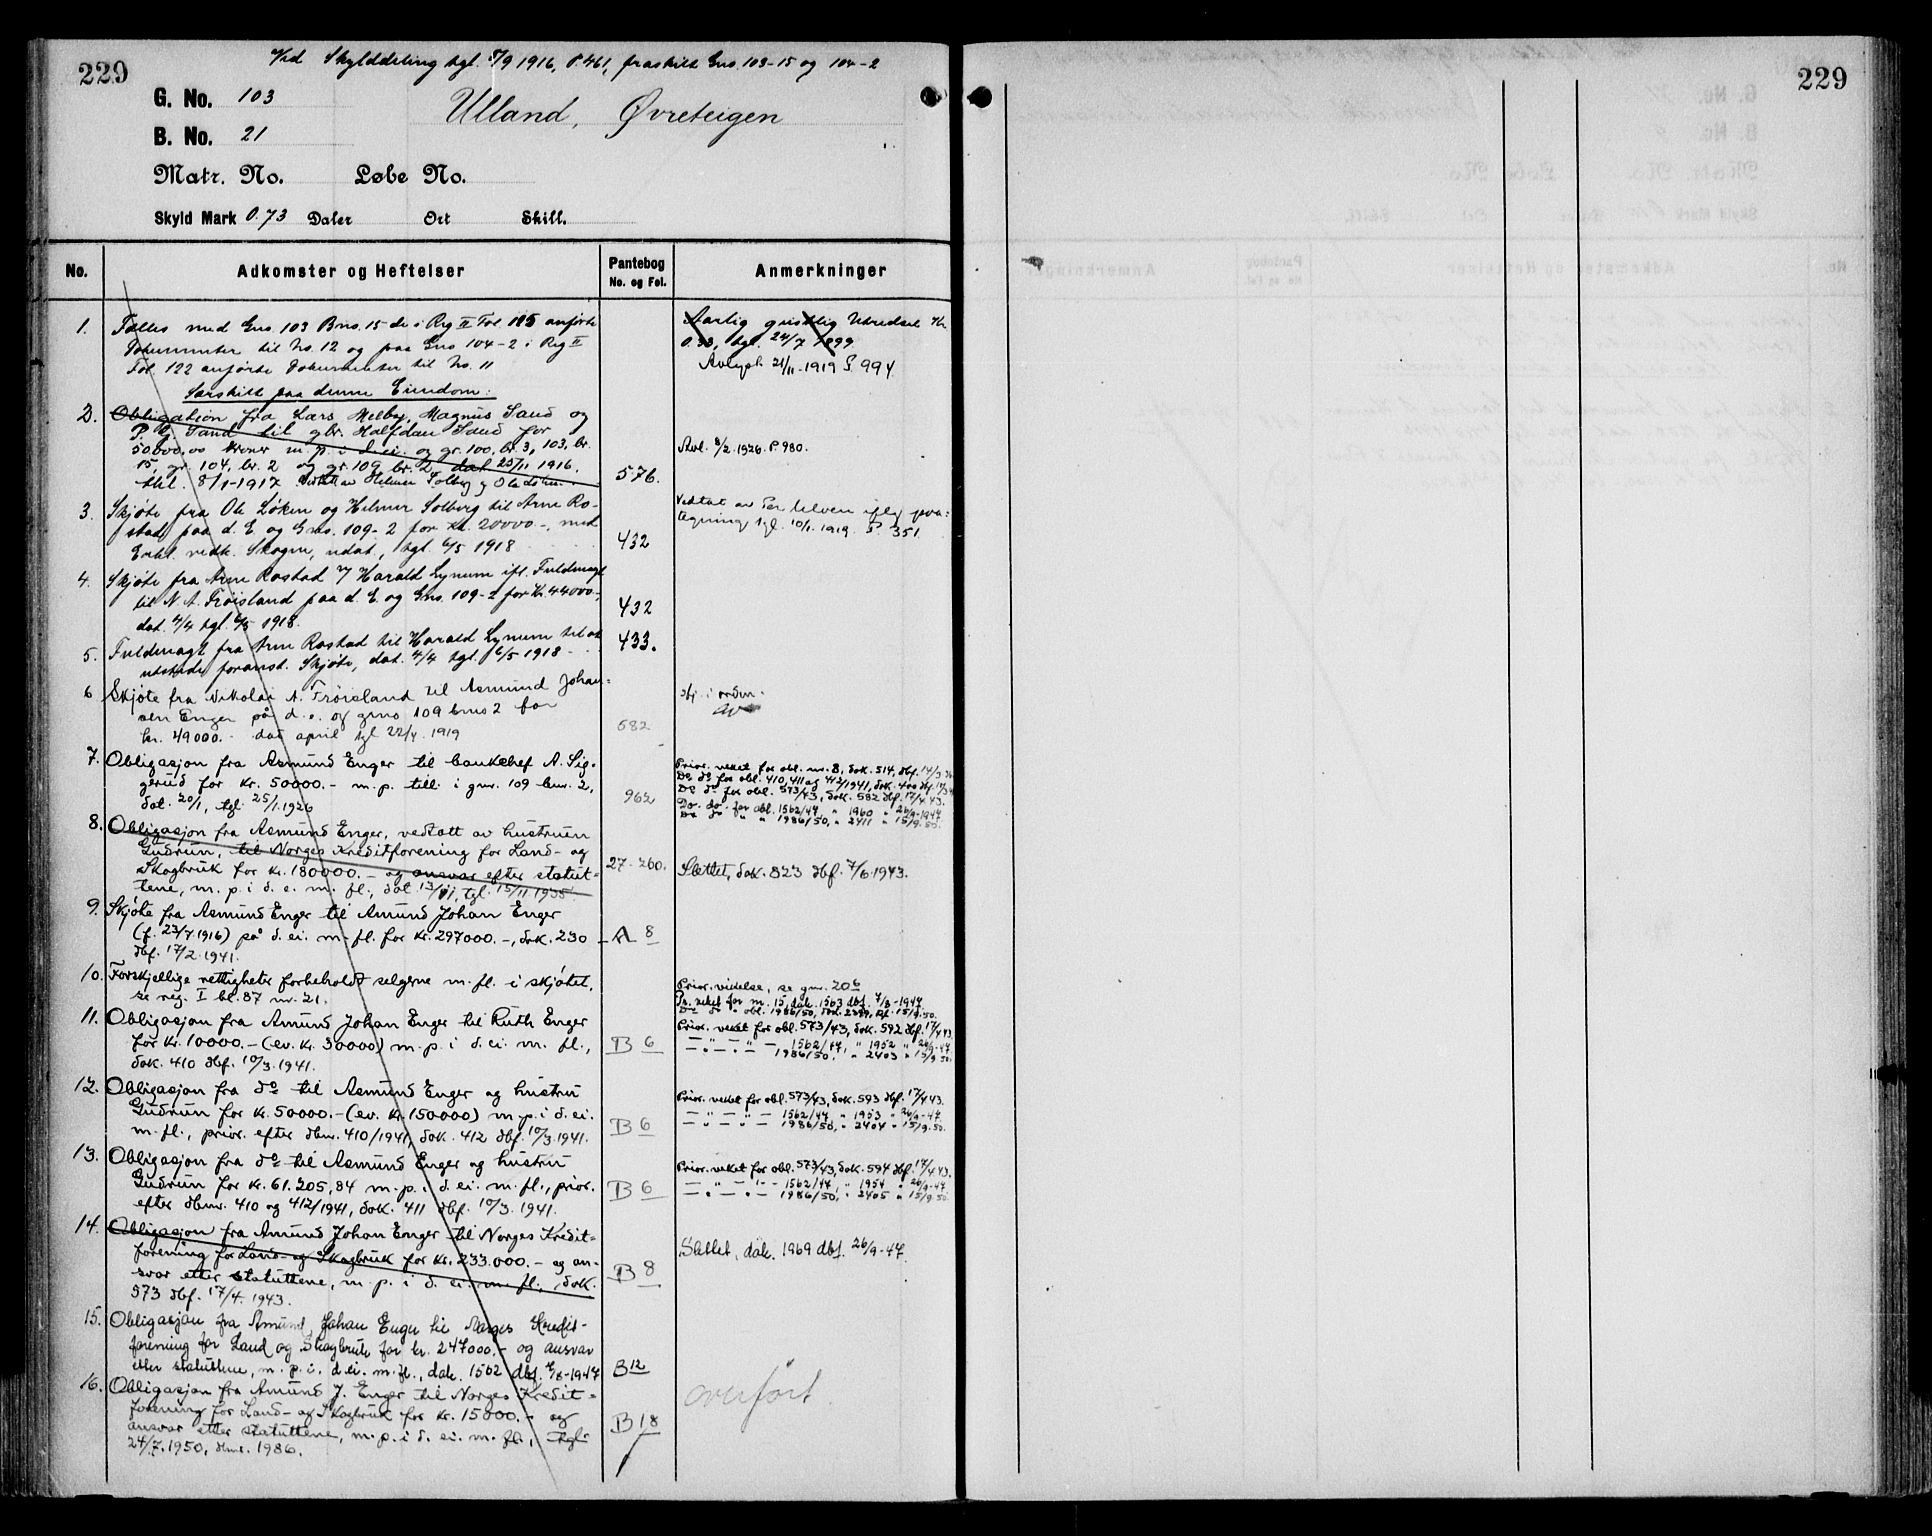 229
Ved Skylddeling tgl. 8/9 1916, P. 461, fraskilt Gno. 103-15 og 104-2
G. No. 103
Ulland, Øvreteigen
B. No. 21
Matr. No. Løbe No.
Skyld Mark 0.73 Daler Ort Skill.
No. Adkomster og Heftelser Pantebog No. og Fol. Anmerkninger
1. Fælles med Gno. 103 Bno. 15 de i Reg II Fol. 115 anførte
Dokumenter til No. 12 og paa Gno 104-2 i Reg II
Fol. 122 anførte Dokumenter til No. 11
Aarlig geistlig Utredsel Kr.
0.33, tgl. 24/7 1899
Avlyst 21/11-1919 P. 994
Særskilt paa denne Eiendom:
2. Obligation fra Lars Melby, Magnus Sand og
P. Sand til gbr. Halfdan Sand for
50000,00 kroner m. p. i d. ei. og gr. 100, br. 3, 103, br.
15, gr. 104, br. 2 og gr. 109 br. 2, dat 25/11 1916,
thl. 8/1-1917 Vedtat av Helmer Solberg og Ole Løken
576.
Avl. 8/2. 1926. P. 980.
3. Skjøte fra Ole Løken og Helmer Solberg til Arne Ro-
stad paa d. E og Gno. 109-2 for Kr. 20000-, med
vedk. Skogen, udat., tgl. 6/5 1918
432
Vedtat av
tegning tgl. 10/1. 1919. P. 351.
4. Skjøte fra Arne Rostad v/ Harald Lynum ifl. Fuldmagt
til N. A. Frøisland paa d. E. og Gno. 109-2 for Kr. 44000-,
dat. 4/4 tgl. 6/5 1918.
432
5. Fuldmagt fra Arne Rostad til Harald Lynum til at
utstede foranst. Skjøte, dat. 4/4 tgl. 6/5 1918
433.
6 Skjøte fra Nikolai A. Frøisland til Asmund Johan-
sen Enger på d. e. og gno 109 bno 2 for
kr. 49000.- dat april tgl 22/4. 1919
582
i orden.
7. Obligasjon fra Asmund Enger til bankchef A. Sig-
gerud for kr. 50000.- m. p. till. i gnr. 109 bnr. 2,
dat. 20/1, tgl. 25/1.1926
962
Prior. veket for obl. nr. 8, dok. 514, dbf. 14/3
Do do for obl. 410, 411 og 412/1941, dok. 400 dbf.
Do do for obl. 573/43, dok. 582 dbf. 17/4.43.
Do. do. for obl. 1562/47, " 1960 " 26/9-1947
Do do " " 1986/50, " 2411 " 15/9.50.
8. Obligasjon fra Asmund Enger, vedtatt av hustruen
Gudrun, til Norges Kreditforening for Land- og
Skogbruk for kr. 180000.- og ansvar efter statut-
tene, m. p. i d. e. m. fl., dat 13/11, tgl. 15/11 1935.
27-260.
Slettet, dok. 823 dbf. 7/6.1943.
9. Skjøte fra Asmund Enger til Amund Johan Enger
(f. 23/7.1916) på d. ei. m. fl. for kr. 297000.-, dok. 230
dbf. 17/2.1941.
A 8
10. Forskjellige rettigheter forbeholdt selgerne m. fl. i skjøtet,
se reg. I bl. 87 nr. 21.
Prior. videlse, se gnr. 20 6
Pr. veket for nr. 15, dok. 1563 dbf. 4/8-1947
Do do " obl. 1986/50, dok. 2399, dbf. 15/9.50.
11. Obligasjon fra Amund Johan Enger til Ruth Enger
for kr. 10000.- (ev. kr. 30000) m. p. i d. ei. m. fl.,
dok. 410 dbf. 10/3.1941.
B 6
Prior. veket for obl. 573/43, dok. 592 dbf. 17/4 43.
— " — " — 1562/47, " 1952 " 26/9-47.
1986/50, " 2403 " 15/9.50.
12. Obligasjon fra do til Asmund Enger og hustru
Gudrun for kr. 50000.- (ev. kr. 150000) m. p. i d. ei.
m. fl., prior. efter dbnr. 410/1941, dok. 412 dbf. 10/3.1941.
B 6
Prior. veket for obl. 573/43, dok. 593 dbf. 17/4 43.
— " — " — 1562/47 " 1953 " 26/9-47.
— " — " — 1986/50, " 2404 " 15/9.50.
13. Obligasjon fra do til Asmund Enger og hustru
Gudrun for kr. 61.205,84 m. p. i d. ei. m. fl., prior.
efter dbnr. 410 og 412/1941, dok. 411 dbf. 10/3.1941.
B 6
Prior. veket for obl. 573/43, dok. 594 dbf. 17/4 43.
— " — " — 1562/47, " 1954 " 26/9-47.
— " — " — 1986/50, " 2405 " 15/9.50.
14. Obligasjon fra Amund Johan Enger til Norges Kredit-
forening for Land- og Skogbruk for kr. 233.000.- og an-
svar etter statuttene, m. p. i d. ei. m. fl., dok.
573 dbf. 17/4. 1943.
B 8
Slettet, dok. 1969 dbf. 26/9-47.
15. Obligasjon fra Amund Johan Enger til Norges Kredit-
forening for Land og Skogbruk for kr. 247000.- og ansvar
etter statuttene, m. p. i. d. ei. m. fl., dok. 1562 dbf. 4/8-1947
B 12
16. Obligasjon fra Amund J. Enger til Norges Kredit-
forening for Land- og Skogbruk for kr. 15000.- og
ansvar etter statuttene, m. p. i d. ei. m. fl., tgl.
24/7.1950, dbnr. 1986.
B 18
overført
229